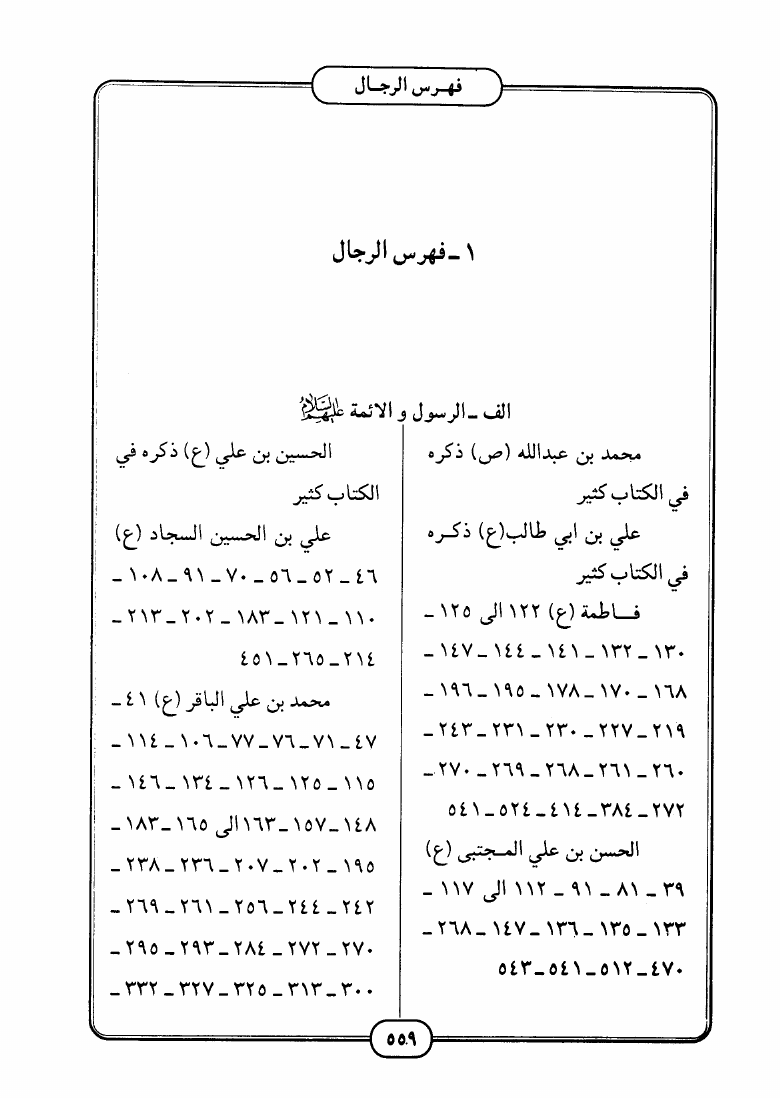 فهرس الرجال
١ ـ فهرس الرجال
الف ـ الرسول و الائمة عليهم السلام
محمد بن عبدالله (ص) ذكره
في الكتاب كثير
علي بن ابي طالب (ع) ذكره
في الكتاب كثير
فاطمة (ع) ١٢٢ الى ١٢٥ ـ
١٣٠ ـ ١٣٢ ـ ١٤١ ـ ١٤٤ ـ ١٤٧ ـ
١٦٨ ـ ١٧٠ ـ ١٧٨ ـ ١٩٥ ـ ١٩٦ ـ
٢١٩ ـ ٢٢٧ ـ ٢٣٠ ـ ٢٣١ ـ ٢٤٣ ـ
٢٦٠ ـ ٢٦١ ـ ٢٦٨ ـ ٢٦٩ ـ ٢٧٠ ـ
٢٧٢ ـ ٣٨٤ ـ ٤١٤ ـ ٥٢٤ ـ ٥٤١
الحسن بن علي المجتبى (ع)
٣٩ ـ ٨١ ـ ٩١ ـ ١١٢ الى ١١٧ ـ
١٣٣ ـ ١٣٥ ـ ١٣٦ ـ ١٤٧ ـ ٢٦٨ ـ
٤٧٠ ـ ٥١٢ ـ ٥٤١ ـ ٥٤٣
الحسين بن علي (ع) ذكره في
الكتاب كثير
علي بن الحسين السجاد (ع)
٤٦ ـ ٥٢ ـ ٥٦ ـ ٧٠ ـ ٩١ ـ ١٠٨ ـ
١١٠ ـ ١٢١ ـ ١٨٣ ـ ٢٠٢ ـ ٢١٣ ـ
٢١٤ ـ ٢٦٥ ـ ٤٥١
محمد بن علي الباقر (ع) ٤١ ـ
٤٧ ـ ٧١ ـ ٧٦ ـ ٧٧ ـ ١٠٦ ـ ١١٤ ـ
١١٥ ـ ١٢٥ ـ ١٢٦ ـ ١٣٤ ـ ١٤٦ ـ
١٤٨ ـ ١٥٧ ـ ١٦٣ الى ١٦٥ ـ ١٨٣ ـ
١٩٥ ـ ٢٠٢ ـ ٢٠٧ ـ ٢٣٦ ـ ٢٣٨ ـ
٢٤٢ ـ ٢٤٤ ـ ٢٥٦ ـ ٢٦١ ـ ٢٦٩ ـ
٢٧٠ ـ ٢٧٢ ـ ٢٨٤ ـ ٢٩٣ ـ ٢٩٥ ـ
٣٠٠ ـ ٣١٣ ـ ٣٢٥ ـ ٣٢٧ ـ ٣٣٢ ـ
٥٥٩